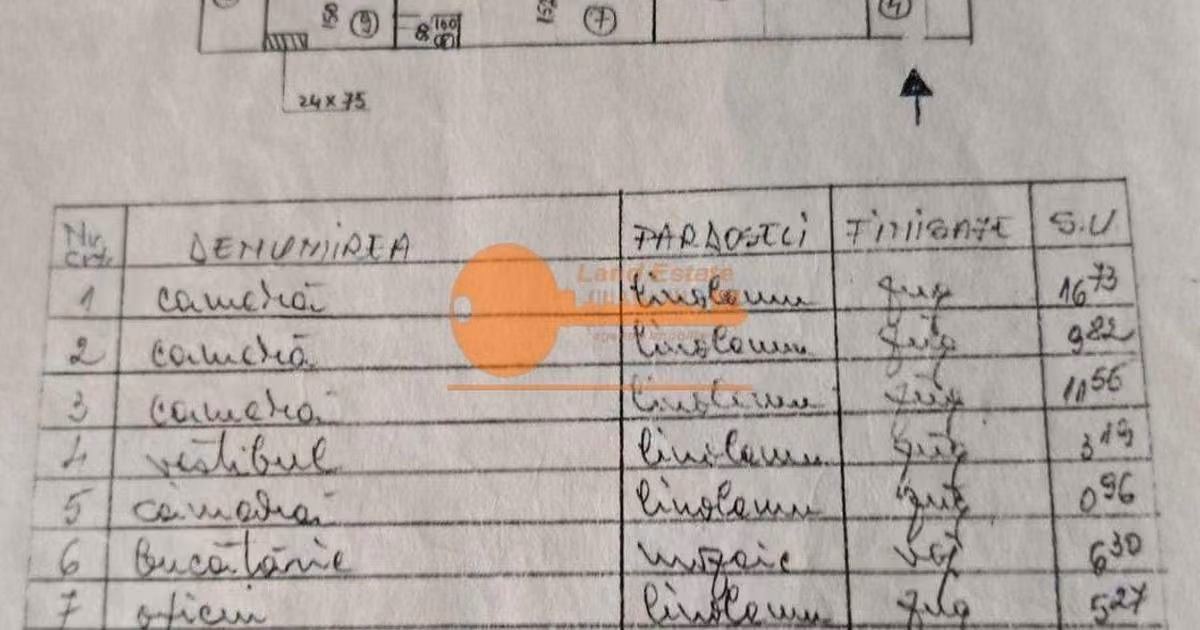 150 9
160
80
152 7
4
24 x 75
Nr. crt. DENUMIREA PARDOSELI FINISAJE S.U
1 cameră linoleum zug 16 73
2 cameră linoleum zug 9 82
3 cameră linoleum zug 11 56
4 vestibul linoleum zug 3 19
5 cămară linoleum zug 0 96
6 bucătărie mozaic 6 30
7 oficiu linoleum zug 5 27
Land Estate